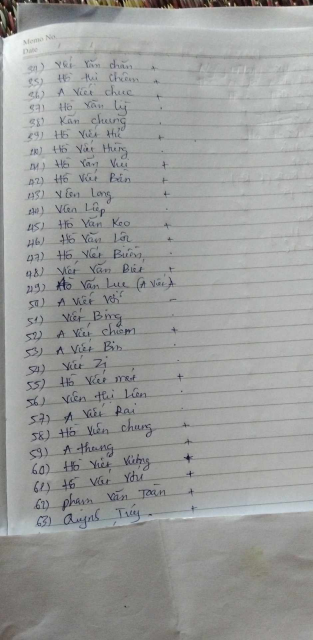 Memo No.
Date
34) Viết Văn chăn +
35) Hồ thị Chiêm +
36) A Viết chuc +
37) Hồ Văn Lý .
38) Kăn chung .
39) Hồ Viết Hit +
40) Hồ Viết Hùng .
41) Hồ Văn Vui +
42) Hồ Viết Bân +
43) Viên Long +
44) Viên Liếp .
45) Hồ Văn Keo +
46) Hồ Văn Lới +
47) Hồ Viết Biên .
48) Viết Văn Biết +
49) Hồ Văn Lưc (A Viết) +
50) A Viết Với -
51) Viết Bing .
52) A Viết chiêm +
53) A Viết Bin .
54) Viết Zi .
55) Hồ Viết mét +
56) Viên thị Liên .
57) A Viết Rai .
58) Hồ Viên chung +
59) A thang +
60) Hồ Viết Vương +
61) Hồ Viết Vưu +
62) phạm Văn Toàn +
63) Quỳnh Thúy . +